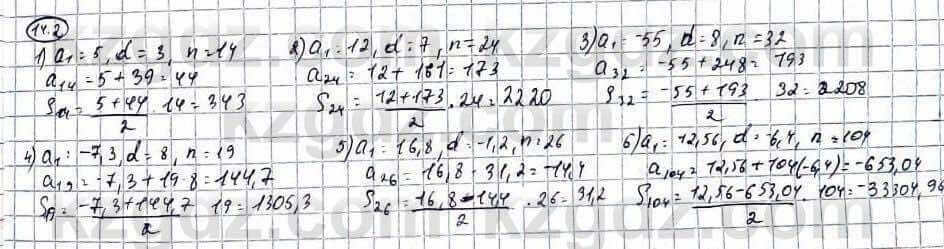 14.2
1) a₁ = 5, d = 3, n = 14
a₁₄ = 5 + 39 = 44
S₁₄ = (5 + 44)/2 · 14 = 343
2) a₁ = 12, d = 7, n = 24
a₂₄ = 12 + 161 = 173
S₂₄ = (12 + 173)/2 · 24 = 2220
3) a₁ = -55, d = 8, n = 32
a₃₂ = -55 + 248 = 193
S₃₂ = (-55 + 193)/2 · 32 = 2208
4) a₁ = -7,3, d = 8, n = 19
a₁₉ = -7,3 + 19·8 = 144,7
S₁₉ = (-7,3 + 144,7)/2 · 19 = 1305,3
5) a₁ = 16,8, d = -1,2, n = 26
a₂₆ = 16,8 - 31,2 = -14,4
S₂₆ = (16,8 - 14,4)/2 · 26 = 31,2
6) a₁ = 12,56, d = -6,4, n = 104
a₁₀₄ = 12,56 + 104(-6,4) = -653,04
S₁₀₄ = (12,56 - 653,04)/2 · 104 = -33304,96